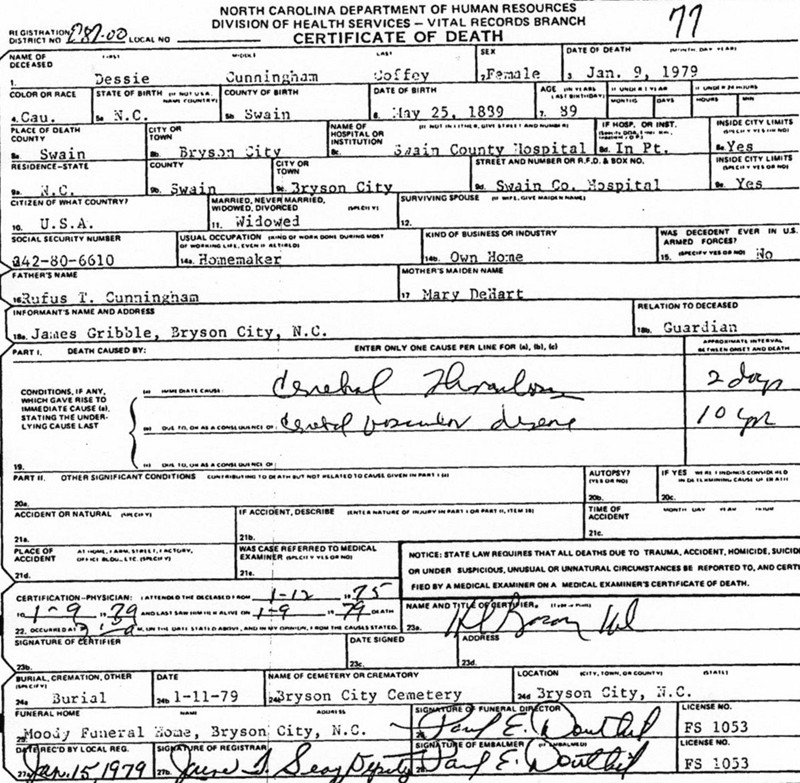 NORTH CAROLINA DEPARTMENT OF HUMAN RESOURCES
DIVISION OF HEALTH SERVICES – VITAL RECORDS BRANCH
CERTIFICATE OF DEATH
77
REGISTRATION DISTRICT NO. LOCAL NO.
NAME OF DECEASED FIRST MIDDLE LAST SEX DATE OF DEATH (MONTH, DAY, YEAR)
1. Dessie Cunningham Coffey 2. Female 3. Jan. 9, 1979
COLOR OR RACE STATE OF BIRTH (IF NOT U.S.A. NAME COUNTRY) COUNTY OF BIRTH DATE OF BIRTH AGE (IN YEARS LAST BIRTHDAY) IF UNDER 1 YEAR IF UNDER 24 HOURS
MONTHS DAYS HOURS MIN
4. Cau. 5a N.C. 5b Swain 6. May 25, 1889 7. 89
PLACE OF DEATH COUNTY CITY OR TOWN NAME OF HOSPITAL OR INSTITUTION (IF NOT IN EITHER, GIVE STREET AND NUMBER) IF HOSP. OR INST. INSIDE CITY LIMITS (SPECIFY YES OR NO)
8a. Swain 8b. Bryson City 8c. Swain County Hospital 8d. In Pt. 8e Yes
RESIDENCE-STATE COUNTY CITY OR TOWN STREET AND NUMBER OR R.F.D. & BOX NO. INSIDE CITY LIMITS (SPECIFY YES OR NO)
9a. N.C. 9b. Swain 9c. Bryson City 9d. Swain Co. Hospital 9e. Yes
CITIZEN OF WHAT COUNTRY? MARRIED, NEVER MARRIED, WIDOWED, DIVORCED (SPECIFY) SURVIVING SPOUSE (IF WIFE, GIVE MAIDEN NAME)
10. U.S.A. 11. Widowed 12.
SOCIAL SECURITY NUMBER USUAL OCCUPATION (KIND OF WORK DONE DURING MOST OF WORKING LIFE, EVEN IF RETIRED) KIND OF BUSINESS OR INDUSTRY WAS DECEDENT EVER IN U.S. ARMED FORCES? (SPECIFY YES OR NO)
242-80-6610 14a. Homemaker 14b. Own Home 15. No
FATHER'S NAME MOTHER'S MAIDEN NAME
16 Rufus T. Cunningham 17 Mary DeHart
INFORMANT'S NAME AND ADDRESS RELATION TO DECEASED
18a. James Gribble, Bryson City, N.C. 18b. Guardian
PART I. DEATH CAUSED BY: ENTER ONLY ONE CAUSE PER LINE FOR (a), (b), (c) APPROXIMATE INTERVAL BETWEEN ONSET AND DEATH
CONDITIONS, IF ANY, WHICH GAVE RISE TO IMMEDIATE CAUSE (a), STATING THE UNDERLYING CAUSE LAST
(a) IMMEDIATE CAUSE: Cerebral Thrombosis 2 days
(b) DUE TO, OR AS A CONSEQUENCE OF: Cerebral vascular disease 10 yrs
19. (c) DUE TO, OR AS A CONSEQUENCE OF:
PART II. OTHER SIGNIFICANT CONDITIONS CONTRIBUTING TO DEATH BUT NOT RELATED TO CAUSE GIVEN IN PART I (a) AUTOPSY? (YES OR NO) IF YES WERE FINDINGS CONSIDERED IN DETERMINING CAUSE OF DEATH
20a. 20b. 20c.
ACCIDENT OR NATURAL (SPECIFY) IF ACCIDENT, DESCRIBE (ENTER NATURE OF INJURY IN PART I OR PART II, ITEM 19) TIME OF ACCIDENT MONTH DAY YEAR HOUR
21a. 21b. 21c.
PLACE OF ACCIDENT AT HOME, FARM, STREET, FACTORY, OFFICE BLDG., ETC. (SPECIFY) WAS CASE REFERRED TO MEDICAL EXAMINER (SPECIFY YES OR NO)
21d. 21e.
NOTICE: STATE LAW REQUIRES THAT ALL DEATHS DUE TO TRAUMA, ACCIDENT, HOMICIDE, SUICID
OR UNDER SUSPICIOUS, UNUSUAL OR UNNATURAL CIRCUMSTANCES BE REPORTED TO, AND CERTI
FIED BY A MEDICAL EXAMINER ON A MEDICAL EXAMINER'S CERTIFICATE OF DEATH.
CERTIFICATION–PHYSICIAN: I ATTENDED THE DECEASED FROM 1-12 1975
TO 1-9 1979 AND LAST SAW HIM/HER ALIVE ON 1-9 1979 DEATH
22. OCCURRED AT M, ON THE DATE STATED ABOVE, AND IN MY OPINION, FROM THE CAUSES STATED.
NAME AND TITLE OF CERTIFIER (TYPE OR PRINT)
23a.
SIGNATURE OF CERTIFIER DATE SIGNED ADDRESS
23b. 23c. 23d.
BURIAL, CREMATION, OTHER (SPECIFY) DATE NAME OF CEMETERY OR CREMATORY LOCATION (CITY, TOWN, OR COUNTY) (STATE)
24a Burial 24b 1-11-79 24c Bryson City Cemetery 24d Bryson City, N.C.
FUNERAL HOME NAME ADDRESS SIGNATURE OF FUNERAL DIRECTOR LICENSE NO.
25 Moody Funeral Home, Bryson City, N.C. Paul E. Douthit FS 1053
DATE REC'D BY LOCAL REG. SIGNATURE OF REGISTRAR SIGNATURE OF EMBALMER (IF EMBALMED) LICENSE NO.
27a. Jan. 15, 1979 27b. Deputy Paul E. Douthit FS 1053